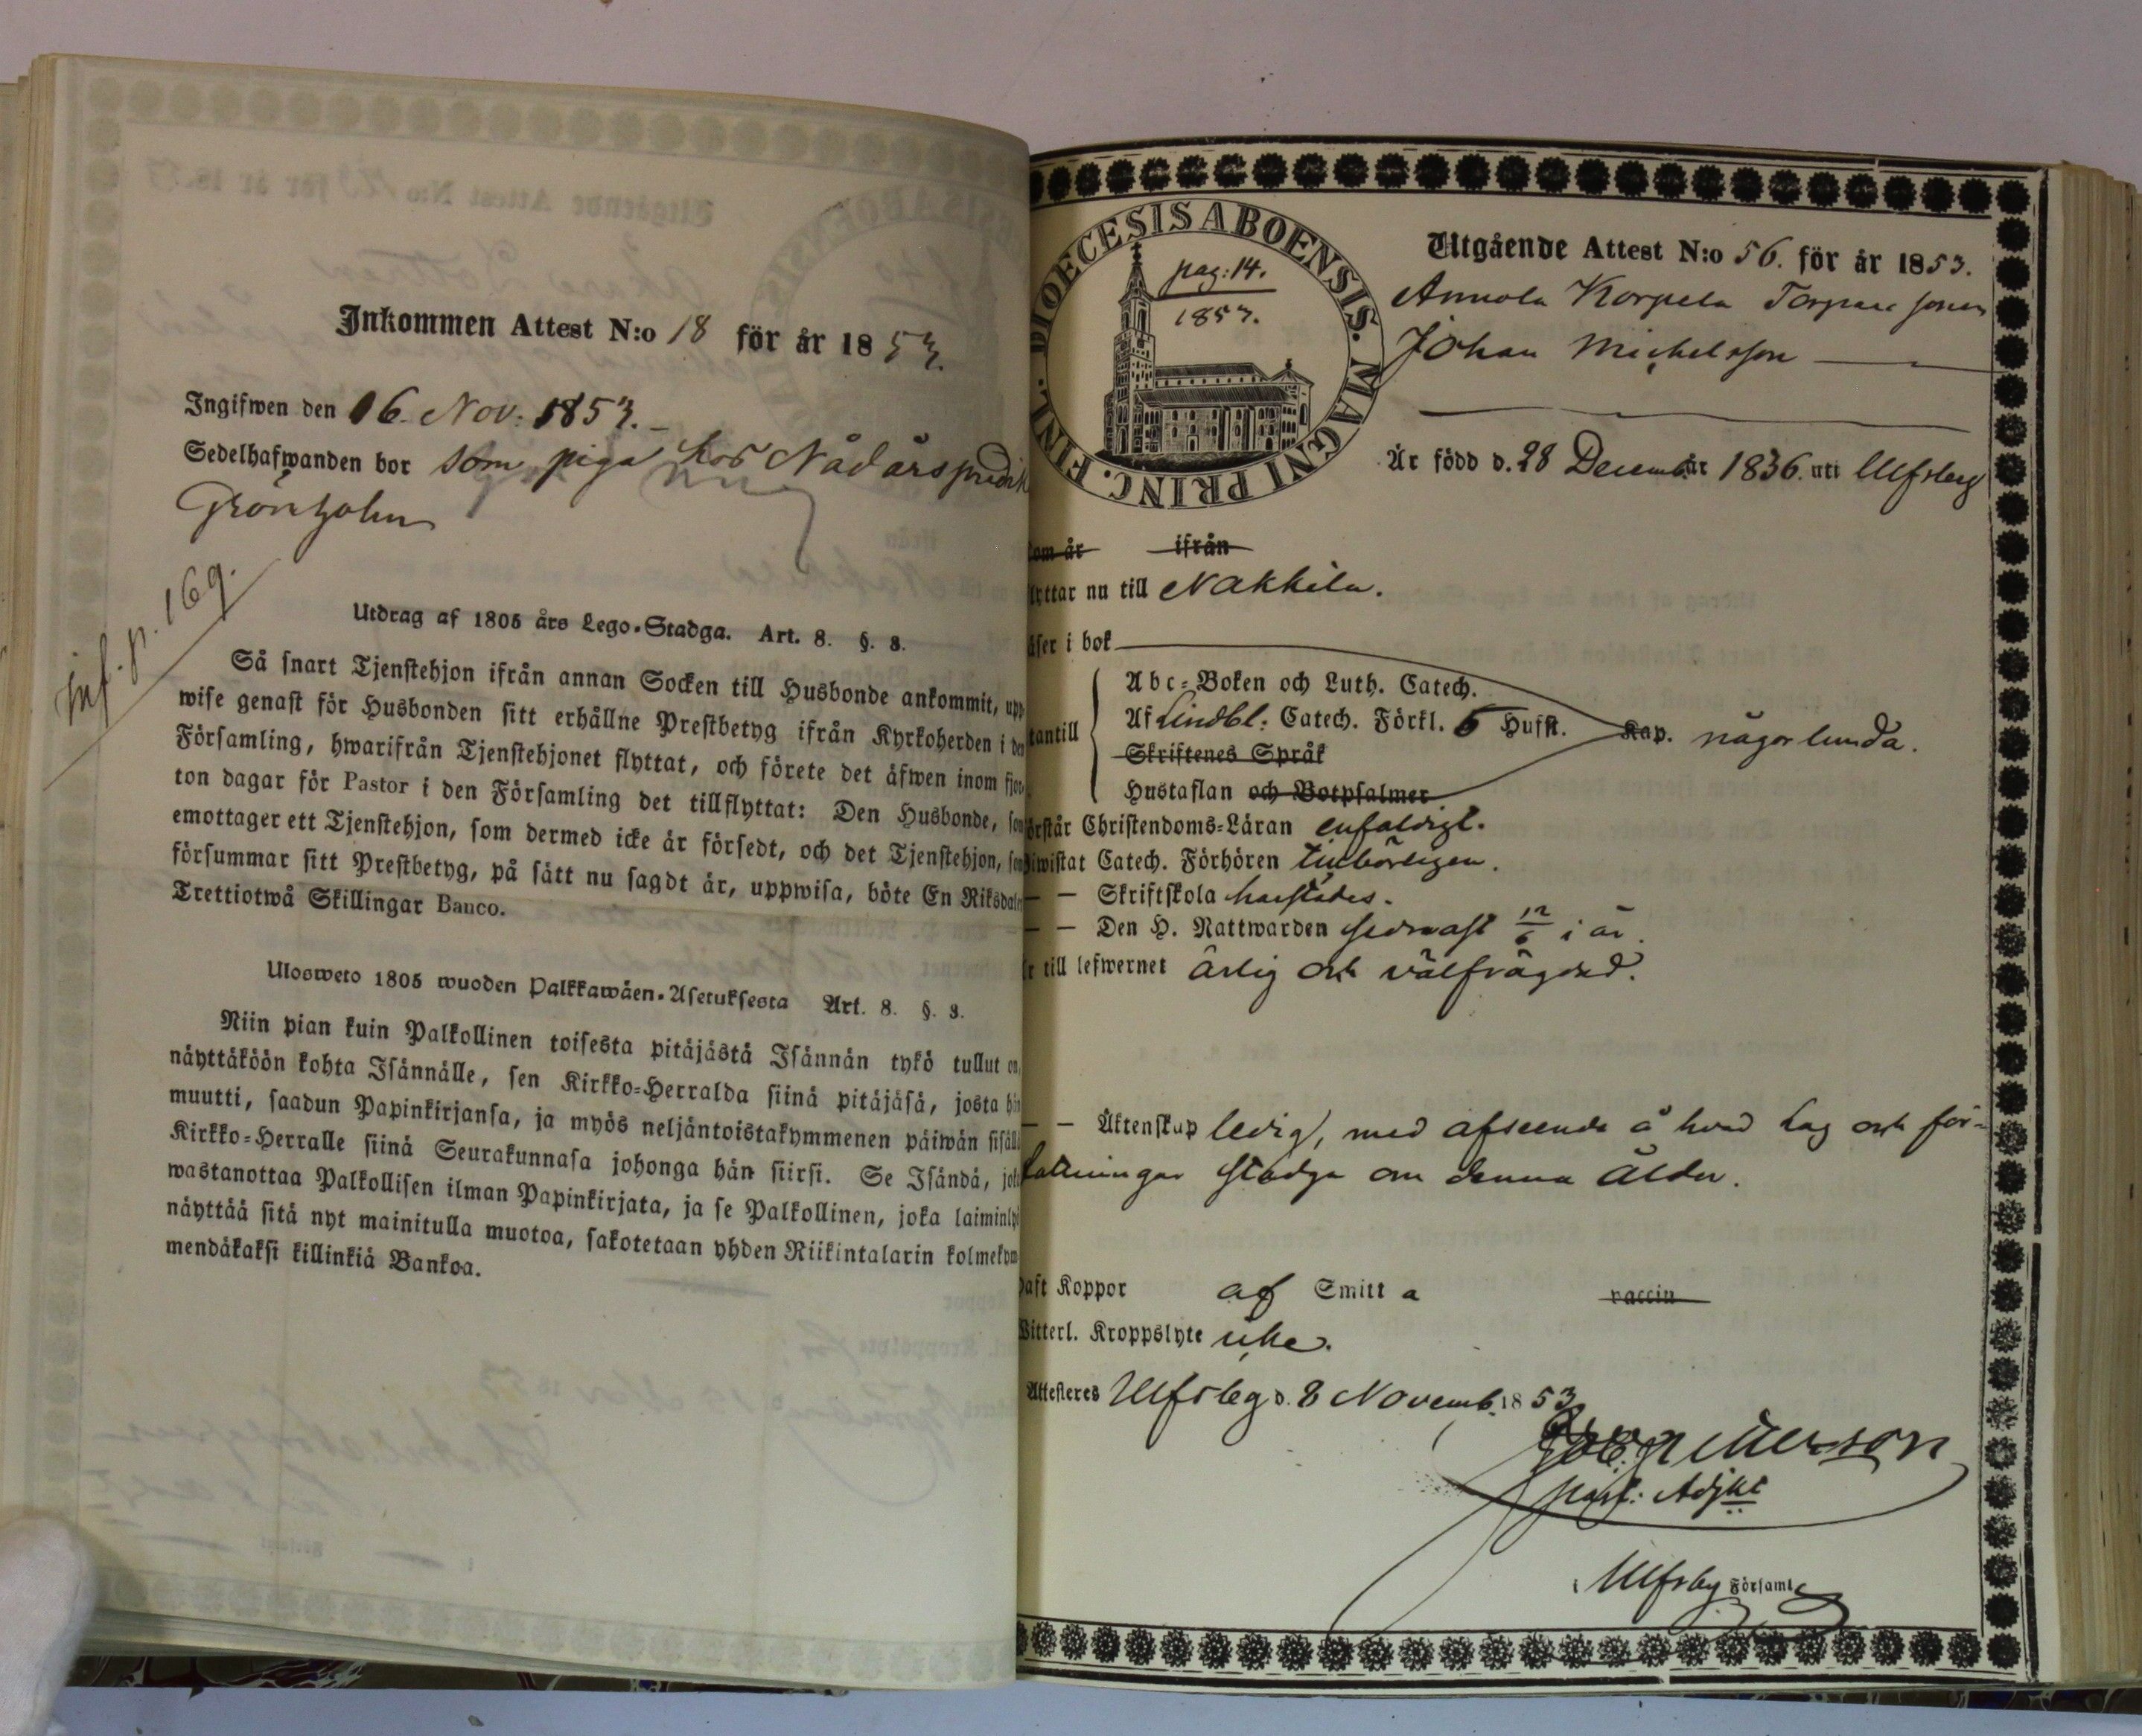 Inkommen Attest N:o 18 för år 1853.
Ingifwen den 16. Nov: 1853.
Sedelhafwanden bor som piga hos Nådårspredik
Grönholm
inf. p. 169.
Utdrag af 1805 års Lego-Stadga. Art. 8. §. 3.
Så snart Tjenstehjon ifrån annan Socken till Husbonde ankommit, upp
wise genast för Husbonden sitt erhållne Prestbetyg ifrån Kyrkoherden i den
Församling, hwarifrån Tjenstehjonet flyttat, och förete det äfwen inom fjor-
ton dagar för Pastor i den Församling det tillflyttat: Den Husbonde, som
emottager ett Tjenstehjon, som dermed icke är försedt, och det Tjenstehjon, som
försummar sitt Prestbetyg, på sätt nu sagdt är, uppwisa, böte En Riksdaler
Trettiotwå Skillingar Banco.
Ulosweto 1805 wuoden Palkkawäen-Asetuksesta Art. 8. §. 3.
Niin pian kuin Palkollinen toisesta pitäjästä Isännän tykö tullut on,
näyttäköön kohta Isännälle, sen Kirkko-Herralda siinä pitäjäsä, josta hän
muutti, saadun Papinkirjansa, ja myös neljäntoistakymmenen päiwän sisällä
Kirkko-Herralle siinä Seurakunnasa johonga hän siirsi. Se Isändä, joka
wastanottaa Palkollisen ilman Papinkirjata, ja se Palkollinen, joka laiminlyö
näyttää sitä nyt mainitulla muotoa, sakotetaan yhden Riikintalarin kolmekym-
mendäkaksi killinkiä Bankoa.
DIOECESIS ABOENSIS. MAGNI PRINC. FINL.
pag: 14.
1853.
Utgående Attest N:o 56. för år 1853.
Annola Korpela Torpare sonen
Johan Michelsson
Är född d. 28 Decemb. år 1836. uti Ulfsby
kom år ifrån
flyttar nu till Nakkila.
läser i bok
Abc-Boken och Luth. Catech.
utantill Af Lindbl: Catech. Förkl. 5 Hufst. Kap. någorlunda.
Skriftenes Språk
Hustaflan och Botpsalmer
förstår Christendoms-Läran enfaldigt.
biwistat Catech. Förhören tillbörligen.
— — Skriftskola härstädes.
— — Den H. Nattwarden sednast 12/6 i år.
är till lefwernet ärlig och välfrägdad.
— — Äktenskap ledig, med afseende å hvad Lag och för-
fattningar stadga om denna ålder.
haft Koppor af Smitta vaccin
Witterl. Kroppslyte icke.
Attesteres Ulfsby d. 8 Novemb. 1853
past: Adjkt
i Ulfsby Församl.